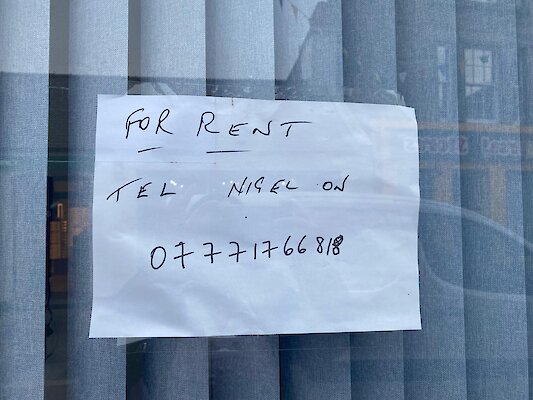 FOR RENT
TEL NIGEL ON
07771766818